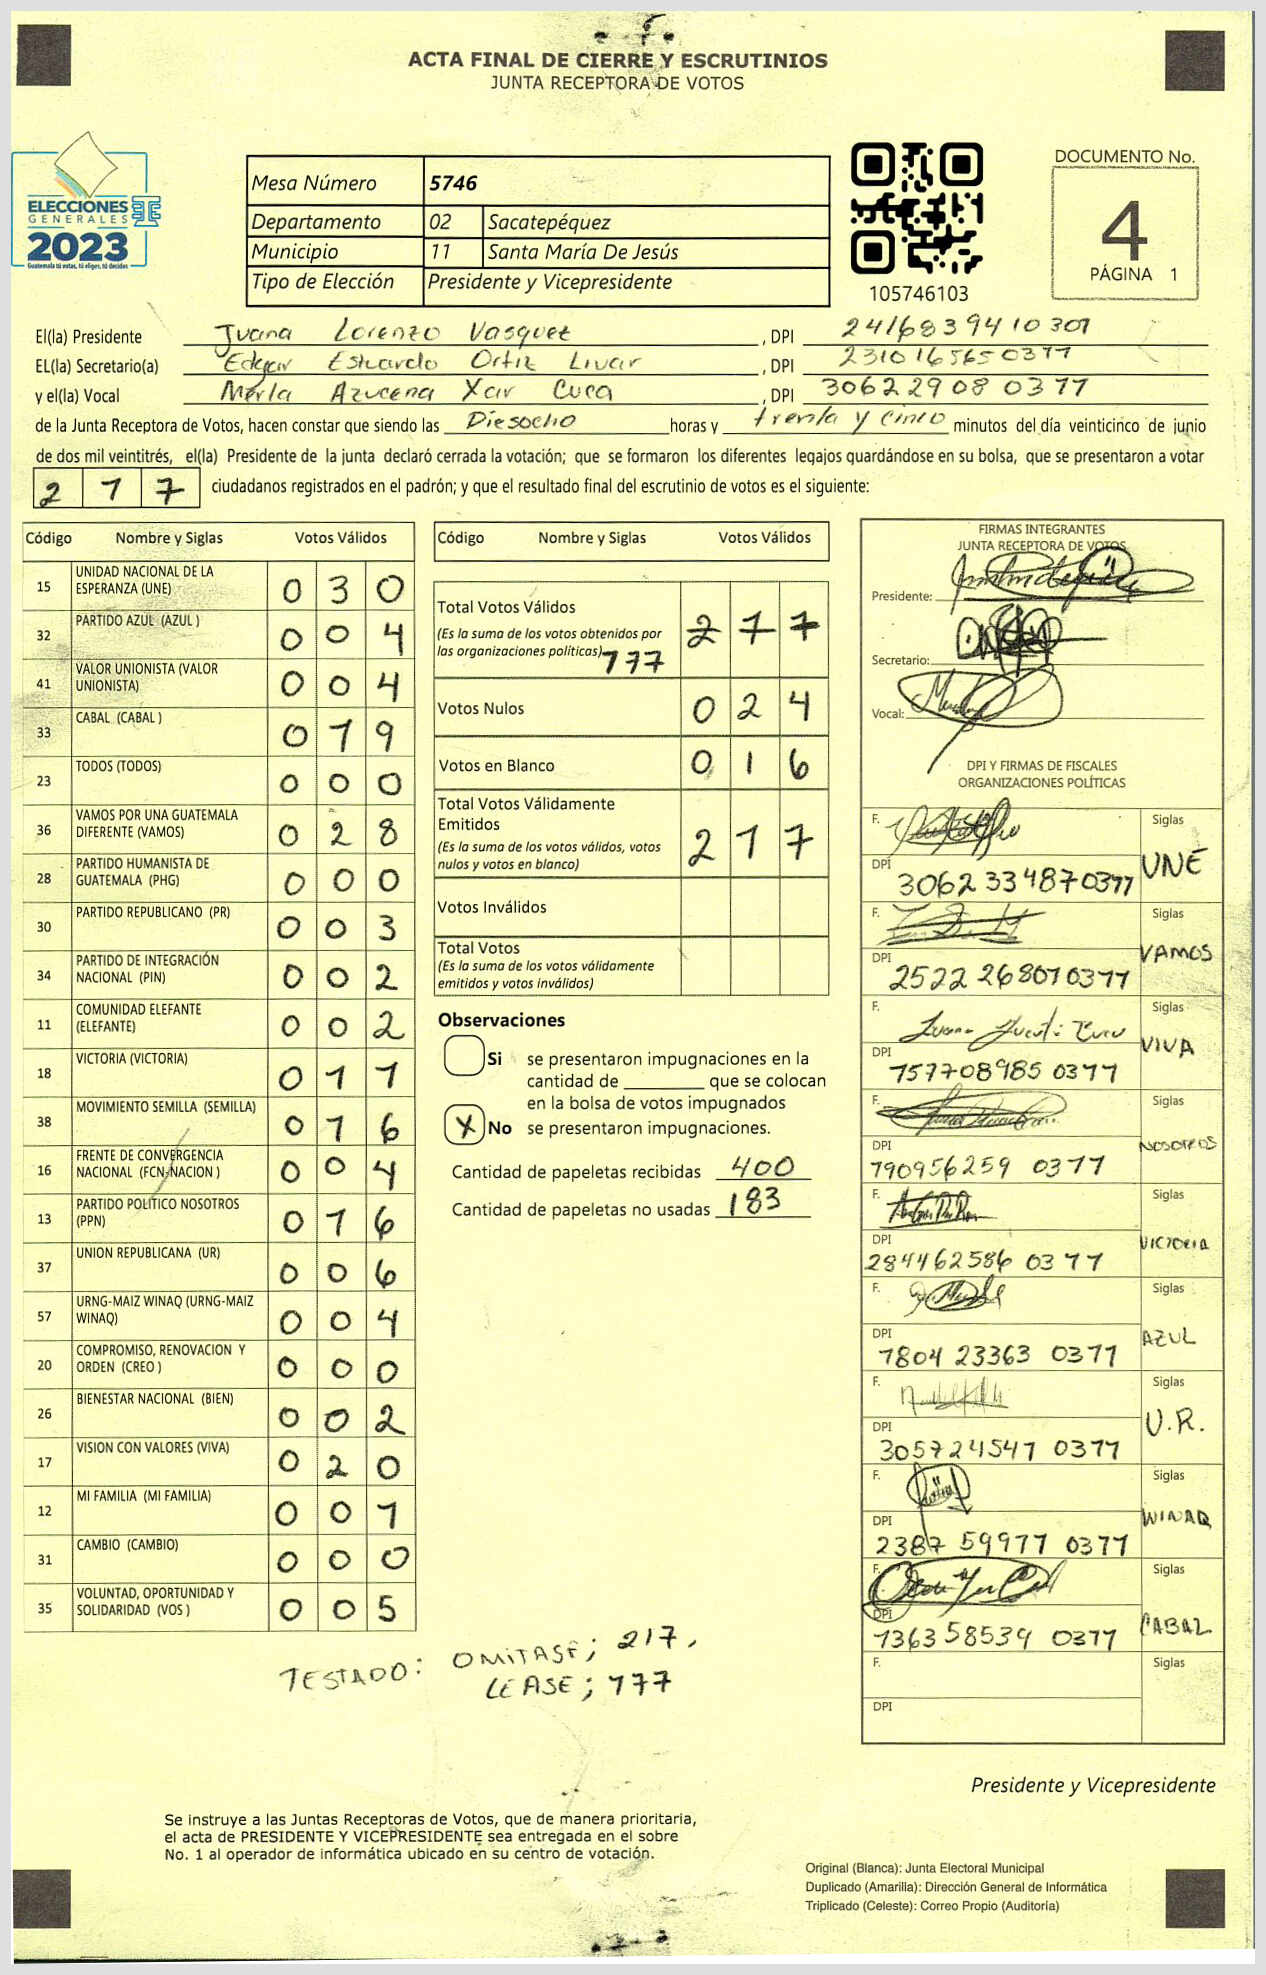 ACTA FINAL DE CIERRE Y ESCRUTINIOS
JUNTA RECEPTORA DE VOTOS
ELECCIONES
GENERALES
2023
Guatemala tú votas, tú eliges, tú decides
Mesa Número 5746
Departamento 02 Sacatepéquez
Municipio 11 Santa María De Jesús
Tipo de Elección Presidente y Vicepresidente
105746103
DOCUMENTO No.
4
PÁGINA 1
El(la) Presidente Juana Lorenzo Vasquez , DPI 2416839410301
EL(la) Secretario(a) Edgar Estuardo Ortiz Livar , DPI 2310165650311
y el(la) Vocal Merla Azucena Xar Cuca , DPI 3062229080311
de la Junta Receptora de Votos, hacen constar que siendo las Diesocho horas y treinta y cinco minutos del día veinticinco de junio
de dos mil veintitrés, el(la) Presidente de la junta declaró cerrada la votación; que se formaron los diferentes legajos quardándose en su bolsa, que se presentaron a votar
217 ciudadanos registrados en el padrón; y que el resultado final del escrutinio de votos es el siguiente:
Código Nombre y Siglas Votos Válidos
15 UNIDAD NACIONAL DE LA ESPERANZA (UNE) 0 3 0
32 PARTIDO AZUL (AZUL ) 0 0 4
41 VALOR UNIONISTA (VALOR UNIONISTA) 0 0 4
33 CABAL (CABAL ) 0 1 9
23 TODOS (TODOS) 0 0 0
36 VAMOS POR UNA GUATEMALA DIFERENTE (VAMOS) 0 2 8
28 PARTIDO HUMANISTA DE GUATEMALA (PHG) 0 0 0
30 PARTIDO REPUBLICANO (PR) 0 0 3
34 PARTIDO DE INTEGRACIÓN NACIONAL (PIN) 0 0 2
11 COMUNIDAD ELEFANTE (ELEFANTE) 0 0 2
18 VICTORIA (VICTORIA) 0 1 1
38 MOVIMIENTO SEMILLA (SEMILLA) 0 1 6
16 FRENTE DE CONVERGENCIA NACIONAL (FCN-NACION ) 0 0 4
13 PARTIDO POLÍTICO NOSOTROS (PPN) 0 1 6
37 UNION REPUBLICANA (UR) 0 0 6
57 URNG-MAIZ WINAQ (URNG-MAIZ WINAQ) 0 0 4
20 COMPROMISO, RENOVACION Y ORDEN (CREO ) 0 0 0
26 BIENESTAR NACIONAL (BIEN) 0 0 2
17 VISION CON VALORES (VIVA) 0 2 0
12 MI FAMILIA (MI FAMILIA) 0 0 1
31 CAMBIO (CAMBIO) 0 0 0
35 VOLUNTAD, OPORTUNIDAD Y SOLIDARIDAD (VOS ) 0 0 5
Código Nombre y Siglas Votos Válidos
Total Votos Válidos 2 1 7
(Es la suma de los votos obtenidos por
las organizaciones políticas) 177
Votos Nulos 0 2 4
Votos en Blanco 0 1 6
Total Votos Válidamente
Emitidos 2 1 7
(Es la suma de los votos válidos, votos
nulos y votos en blanco)
Votos Inválidos
Total Votos
(Es la suma de los votos válidamente
emitidos y votos inválidos)
Observaciones
Si se presentaron impugnaciones en la
cantidad de ________ que se colocan
en la bolsa de votos impugnados
X No se presentaron impugnaciones.
Cantidad de papeletas recibidas 400
Cantidad de papeletas no usadas 183
FIRMAS INTEGRANTES
JUNTA RECEPTORA DE VOTOS
Presidente:
Secretario:
Vocal:
DPI Y FIRMAS DE FISCALES
ORGANIZACIONES POLÍTICAS
F. Siglas UNE
DPI 3062 33487 0311
F. Siglas VAMOS
DPI 2522 26801 0311
F. Siglas VIVA
DPI 157708985 0311
F. Siglas NOSOTROS
DPI 190956259 0311
F. Siglas VICTORIA
DPI 284462586 0311
F. Siglas AZUL
DPI 1804 23363 0311
F. Siglas U.R.
DPI 305724541 0311
F. Siglas WINAQ
DPI 2387 59911 0311
F. Siglas CABAL
DPI 136358539 0311
F. Siglas
DPI
TESTADO: OMITASE; 217,
LEASE; 177
Presidente y Vicepresidente
Se instruye a las Juntas Receptoras de Votos, que de manera prioritaria,
el acta de PRESIDENTE Y VICEPRESIDENTE sea entregada en el sobre
No. 1 al operador de informática ubicado en su centro de votación.
Original (Blanca): Junta Electoral Municipal
Duplicado (Amarilla): Dirección General de Informática
Triplicado (Celeste): Correo Propio (Auditoría)